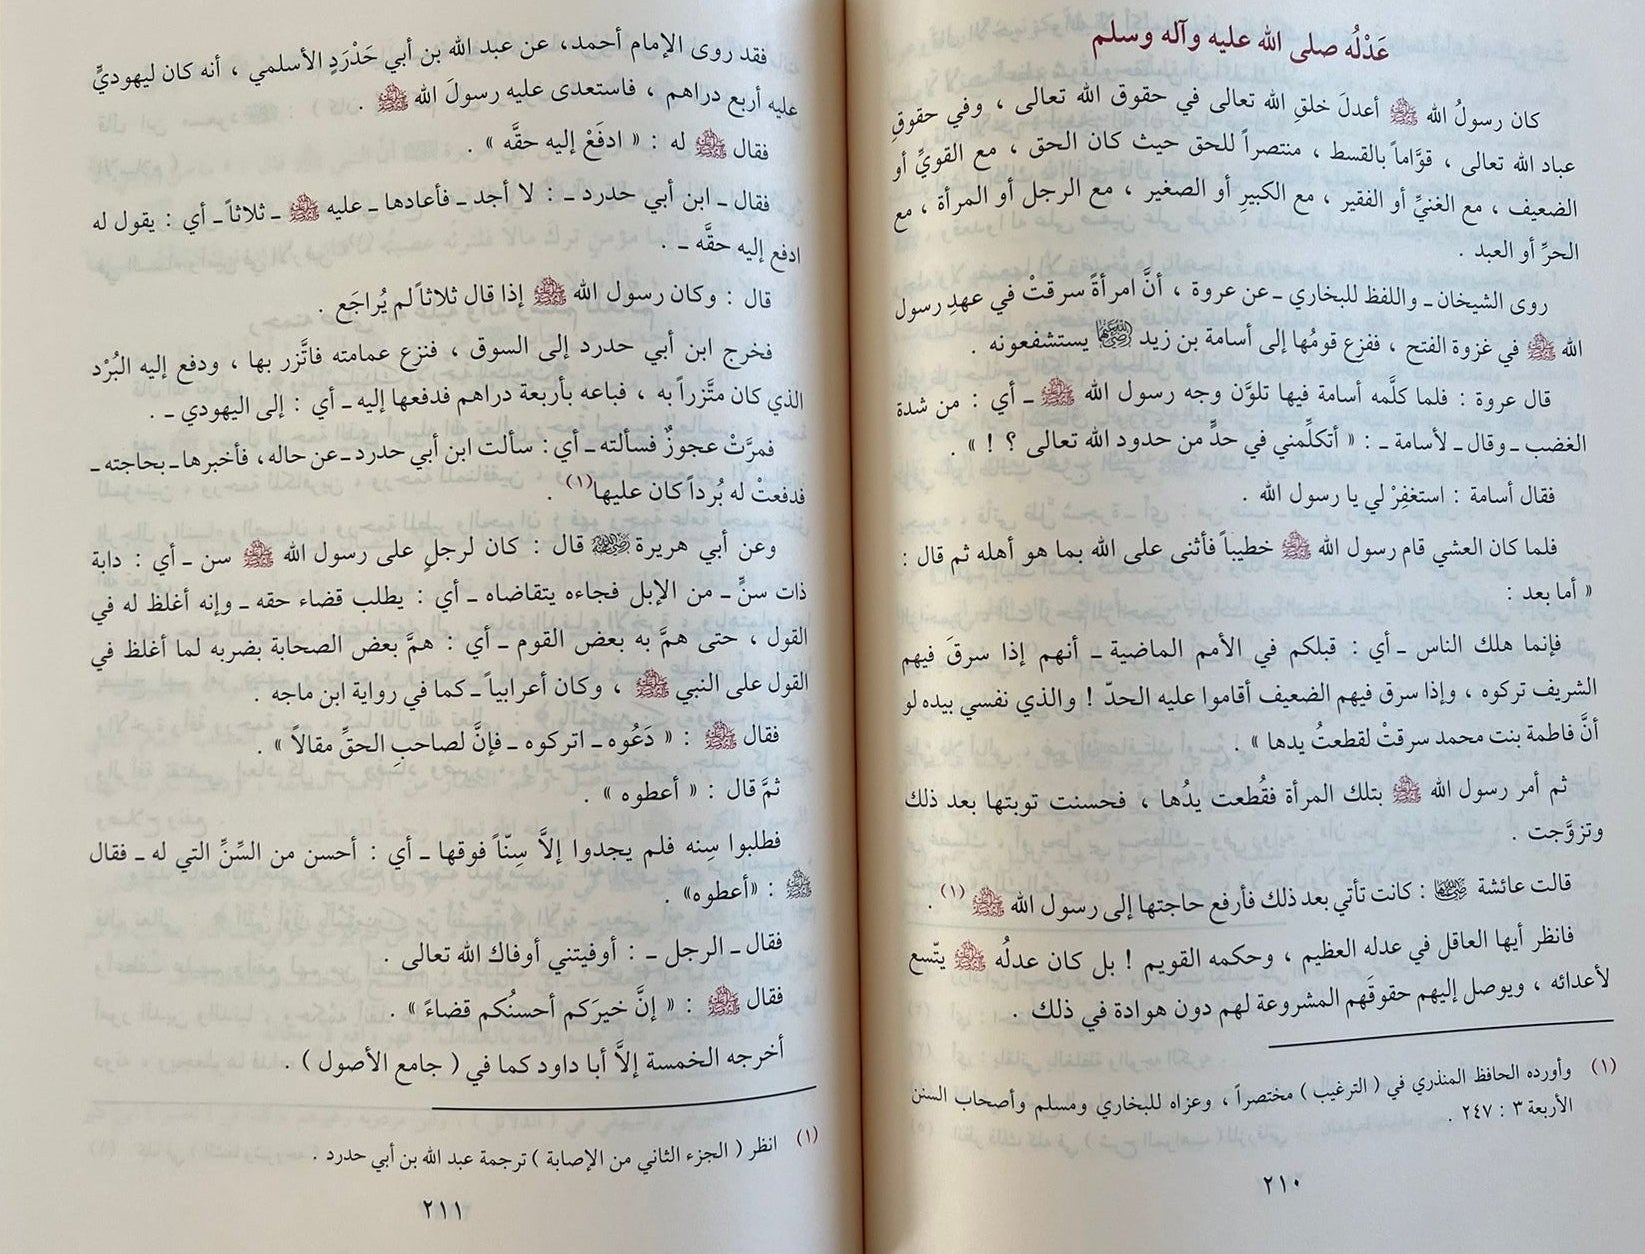 عَدْلُه صلى الله عليه وآله وسلم
كان رسولُ الله ﷺ أعدلَ خلقِ الله تعالى في حقوق الله تعالى ، وفي حقوقِ
عباد الله تعالى ، قوَّاماً بالقسط ، منتصراً للحق حيث كان الحق ، مع القويِّ أو
الضعيف ، مع الغنيِّ أو الفقير ، مع الكبيرِ أو الصغير ، مع الرجل أو المرأة ، مع
الحرِّ أو العبد .
روى الشيخان ـ واللفظ للبخاري ـ عن عروة ، أنَّ امرأةً سرقتْ في عهدِ رسول
الله ﷺ في غزوة الفتح ، ففزع قومُها إلى أسامة بن زيد رضي الله عنهما يستشفعونه .
قال عروة : فلما كلَّمه أسامة فيها تلوَّن وجه رسول الله ﷺ ـ أي : من شدة
الغضب ـ وقال ـ لأسامة ـ : « أتكلِّمني في حدٍّ من حدود الله تعالى ؟ ! » .
فقال أسامة : استغفِرْ لي يا رسول الله .
فلما كان العشي قام رسول الله ﷺ خطيباً فأثنى على الله بما هو أهله ثم قال :
« أما بعد :
فإنما هلك الناس ـ أي : قبلكم في الأمم الماضية ـ أنهم إذا سرقَ فيهم
الشريف تركوه ، وإذا سرق فيهم الضعيف أقاموا عليه الحدّ ! والذي نفسي بيده لو
أنَّ فاطمة بنت محمد سرقتْ لقطعتُ يدها » .
ثم أمر رسول الله ﷺ بتلك المرأة فقُطعت يدُها ، فحسنت توبتها بعد ذلك
وتزوَّجت .
قالت عائشة رضي الله عنها : كانت تأتي بعد ذلك فأرفع حاجتها إلى رسول الله ﷺ (١) .
فانظر أيها العاقل في عدله العظيم ، وحكمه القويم ! بل كان عدلُه ﷺ يتّسع
لأعدائه ، ويوصل إليهم حقوقَهم المشروعة لهم دون هوادة في ذلك .
(١) وأورده الحافظ المنذري في ( الترغيب ) مختصراً ، وعزاه للبخاري ومسلم وأصحاب السنن
الأربعة ٣ : ٢٤٧ .
٢١٠
فقد روى الإمام أحمد، عن عبد الله بن أبي حَدْرَدٍ الأسلمي ، أنه كان ليهوديٍّ
عليه أربع دراهم ، فاستعدى عليه رسولَ الله ﷺ .
فقال ﷺ له : « ادفَعْ إليه حقَّه » .
فقال ـ ابن أبي حدرد ـ : لا أجد ـ فأعادها ـ عليه ﷺ ـ ثلاثاً ـ أي : يقول له
ادفع إليه حقَّه ـ .
قال : وكان رسول الله ﷺ إذا قال ثلاثاً لم يُراجَع .
فخرج ابن أبي حدرد إلى السوق ، فنزع عمامته فاتَّزر بها ، ودفع إليه البُرْد
الذي كان متَّزراً به ، فباعه بأربعة دراهم فدفعها إليه ـ أي : إلى اليهودي ـ .
فمرَّتْ عجوزٌ فسألته ـ أي : سألت ابن أبي حدرد ـ عن حاله، فأخبرها ـ بحاجته ـ
فدفعتْ له بُرداً كان عليها(١) .
وعن أبي هريرة رضي الله عنه قال : كان لرجلٍ على رسول الله ﷺ سن ـ أي : دابة
ذات سنٍّ ـ من الإبل فجاءه يتقاضاه ـ أي : يطلب قضاء حقه ـ وإنه أغلظ له في
القول ، حتى همَّ به بعض القوم ـ أي : همَّ بعض الصحابة بضربه لما أغلظ في
القول على النبي ﷺ ، وكان أعرابياً ـ كما في رواية ابن ماجه .
فقال ﷺ : « دَعُوه ـ اتركوه ـ فإنَّ لصاحبِ الحقِّ مقالاً » .
ثمَّ قال : « أعطوه » .
فطلبوا سِنه فلم يجدوا إلاَّ سِنّاً فوقها ـ أي : أحسن من السِّنِّ التي له ـ فقال
ﷺ : «أعطوه» .
فقال ـ الرجل ـ : أوفيتني أوفاك الله تعالى .
فقال ﷺ : « إنَّ خيرَكم أحسنُكم قضاءً » .
أخرجه الخمسة إلاَّ أبا داود كما في ( جامع الأصول ) .
(١) انظر ( الجزء الثاني من الإصابة ) ترجمة عبد الله بن أبي حدرد .
٢١١